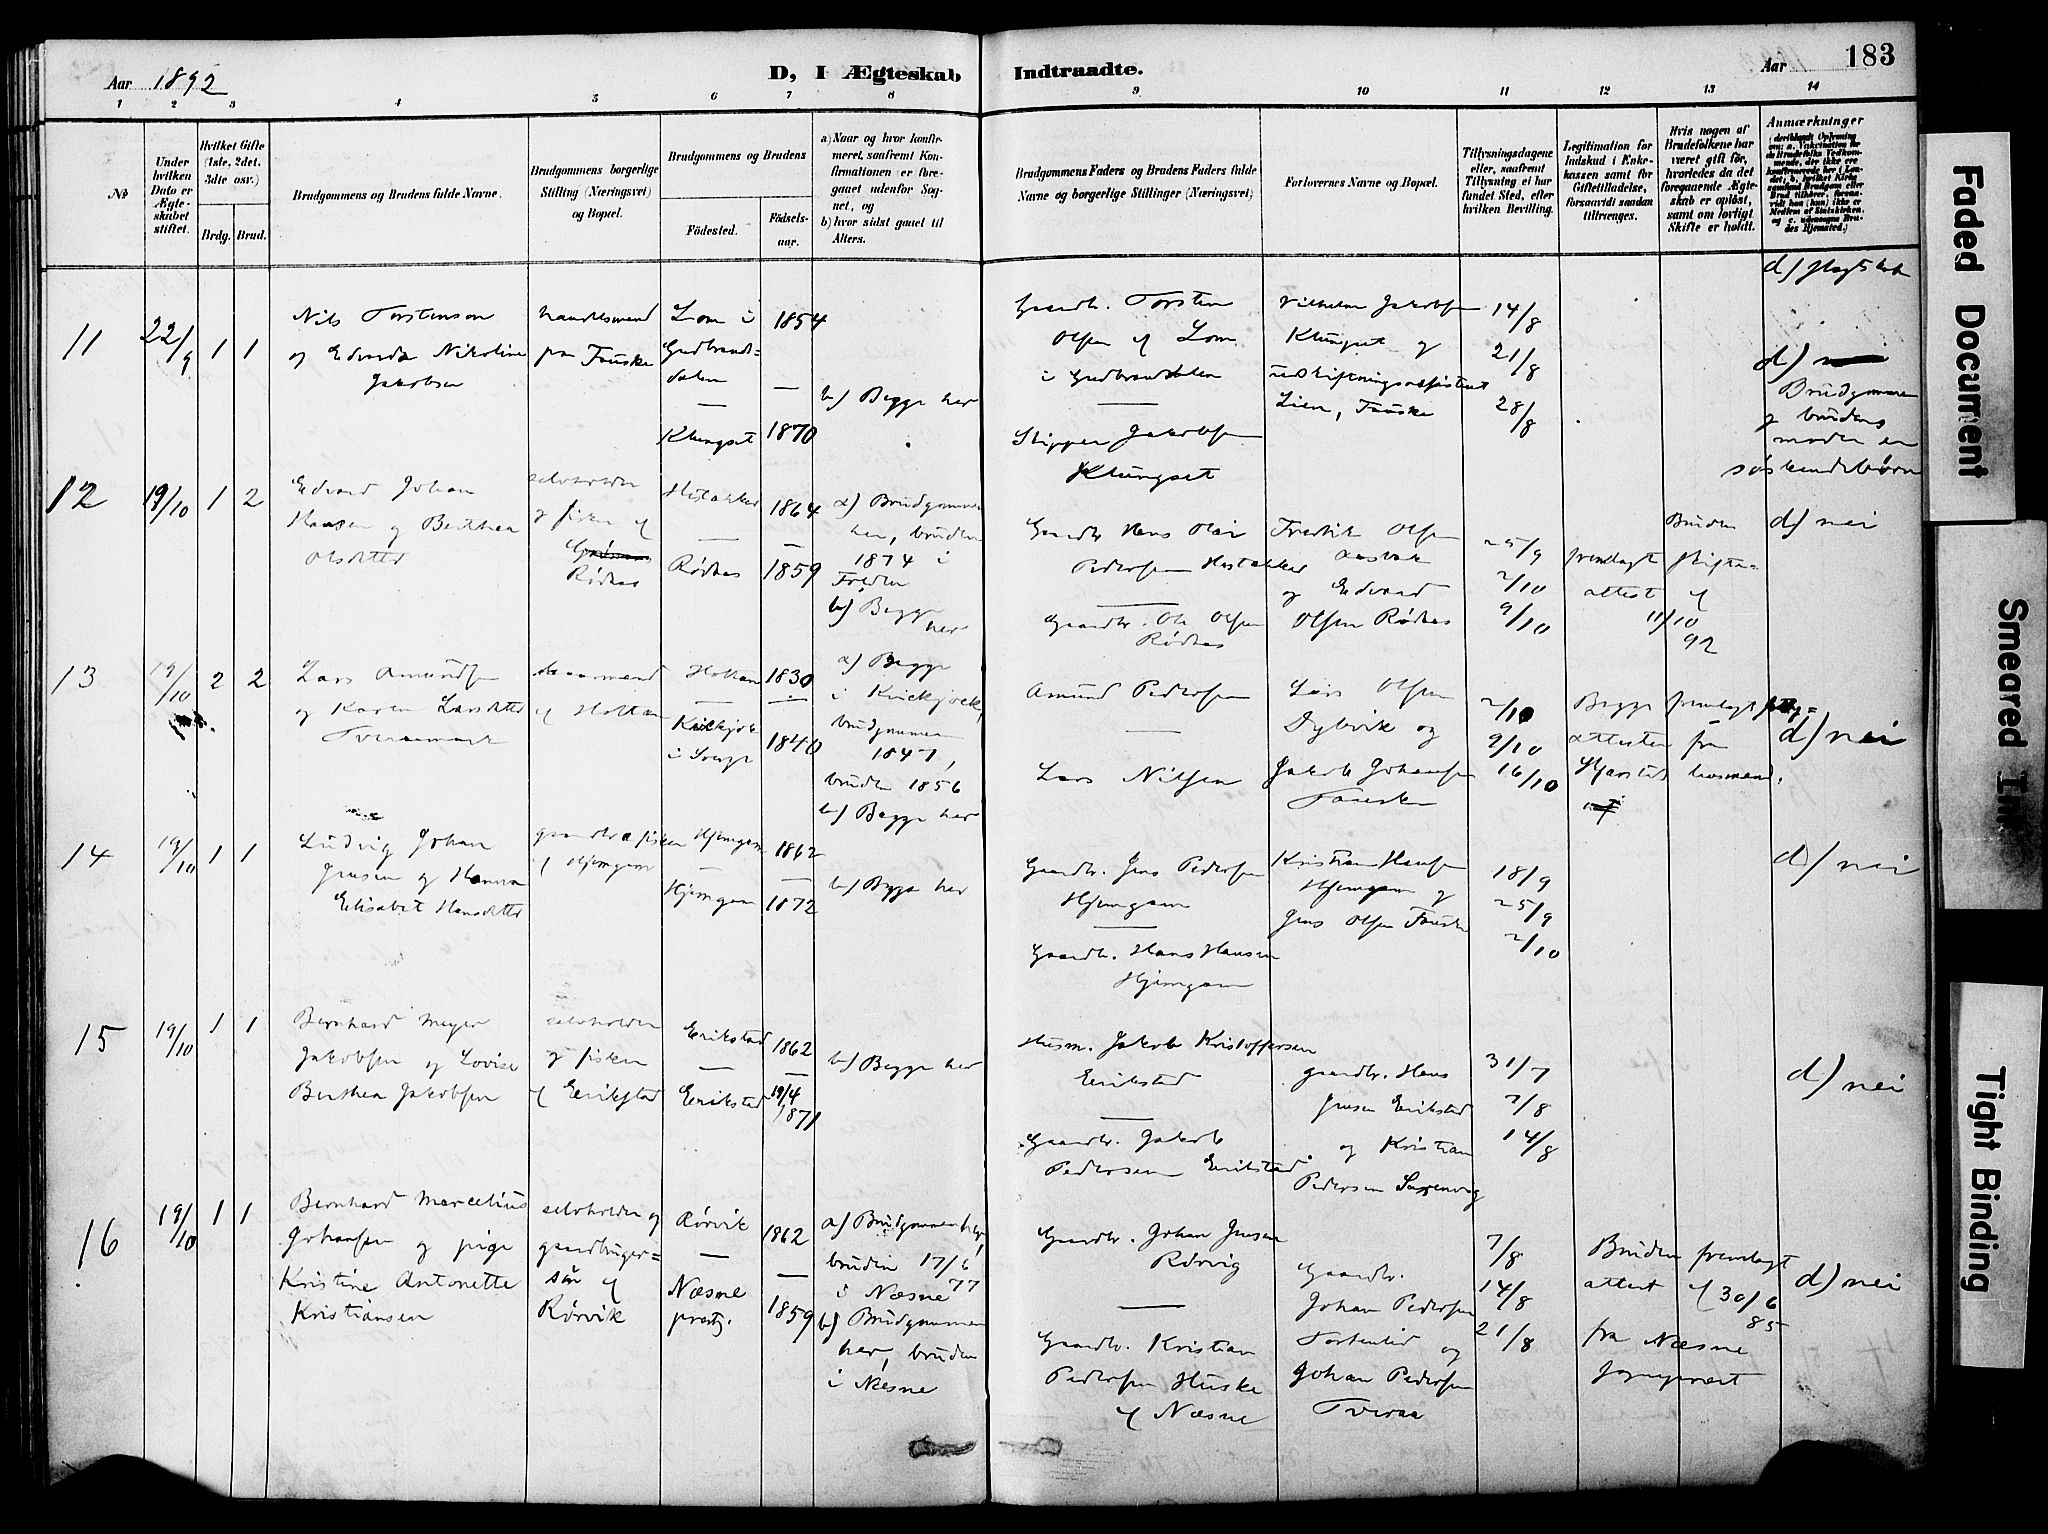 Aar 1892
D, I Ægteskab Indtraadte.
Aar
183
1 2 3 4 5 6 7 8 9 10 11 12 13 14
No
Under hvilken Dato er Ægteskabet stiftet.
Hvilket Gifte (1ste, 2det, 3die osv.)
Brdg. Brud.
Brudgommens og Brudens fulde Navne.
Brudgommens borgerlige Stilling (Næringsvei) og Bopæl.
Brudgommens og Brudens
Födested.
Födselsaar.
a) Naar og hvor konfirmeret, saafremt Konfirmationen er foregaaet udenfor Sognet, og
b) hvor sidst gaaet til Alters.
Brudgommens Faders og Brudens Faders fulde Navne og borgerlige Stillinger (Næringsvei)
Forlovernes Navne og Bopæl.
Tillysningsdagene eller, saafremt Tillysning ei har fundet Sted, efter hvilken Bevilling.
Legitimation for Indskud i Enkekassen samt for Giftetilladelse, forsaavidt saadan tiltrænges.
Hvis nogen af Brudefolkene har været gift för, hvorledes da det foregaaende Ægteskab er oplöst, samt om lovligt Skifte er holdt.
Anmærkninger
11
22/9
1 1
Nils Torstenson
og Edvarda Nikoline
Jakobsen
handelsmand
paa Fauske
Lom i
Gudbrands=
dalen
—
Klungset
1854
—
1870
b) Begge her
Gaardb. Torsten
Olsen af Lom
i Gudbrandsdalen
—
Skipper Jakobsen
Klungset
Vilhelm Jakobsen
Klungset og
udskiftningsassistent
Lien, Fauske
14/8
21/8
28/8
d)
d)
Brudgommen
og brudens
moder er
søskendebørn
12
19/10
1 2
Edvard Johan
Hansen og Berthea
Olsdatter
selvholder
og fisker af
Rødaas
Hestakker
—
Rødaas
1864
—
1859
a) Brudgommen
her, bruden
1874 i
b) Begge
her
Gaardb. Hans Olai
Pedersen Hestakker
—
Gaardb. Ole Olsen
Rødaas
Fredrik Olsen
og Edvard
Olsen Rødaas
25/9
2/10
9/10
fremlagt
attest
Bruden
skifte=
af
11/10
92
d) nei
13
19/10
2 2
Lars Amundsen
og Karen Larsdatter
af Holtan
Holtan
—
Kvickjock
i Sverge
1830
—
1840
a) Begge
i Kvickjock,
brudgommen
1847,
bruden 1856
b) Begge her
Amund Pedersen
—
Lars Nilsen
Lars Olsen
Dybvik og
Jakob Johansen
Fauske
2/10
9/10
16/10
Begge fremlagt
attester fra
d) nei
14
19/10
1 1
Ludvig Johan
Jensen og Hanna
Elisabet Hansdatter
gaardbr. o fisker
af Hjemgam
Hjemgam
—
Hjemgam
1862
—
1872
b) Begge her
Gaardb. Jens Pedersen
Hjemgam
—
Gaardb. Hans Hansen
Hjemgam
Kristian Hansen
Hjemgam og
Jens Olsen Fauske
18/9
25/9
2/10
d) nei
15
19/10
1 1
Bernhard Meyer
Jakobsen og Lovise
Berthea Jakobsen
selvholder
og fisker
af Erikstad
Erikstad
—
Erikstad
1862
—
19/4
1871
b) Begge her
Husm. Jakob Kristoffersen
Erikstad
—
Gaardb. Jakob
Pedersen Erikstad
gaardbr. Hans
Jensen Erikstad
og Kristian
Pedersen
31/7
7/8
14/8
d) nei
16
19/10
1 1
Bernhard Marcelius
Johansen og pige
Kristine Antonette
Kristiansen
selvholder og
gaardbruger=
søn af
Rørvik
Rørvik
—
Næsne
prestg.
1862
—
1859
a) Brudgommen her,
bruden 17/6
77
i Næsne
b) Brudgommen
her, bruden
i Næsne
Gaardb. Johan Jensen
Rørvig
—
Gaardb. Kristian
Pedersen Huske
af Næsne
Gaardbr.
Johan Pedersen
og
Johan Pedersen
Tveraa
7/8
14/8
21/8
Bruden fremlagt
attest af 30/6
85
fra Næsne
d) nei
Faded Document
Smeared Ink
Tight Binding